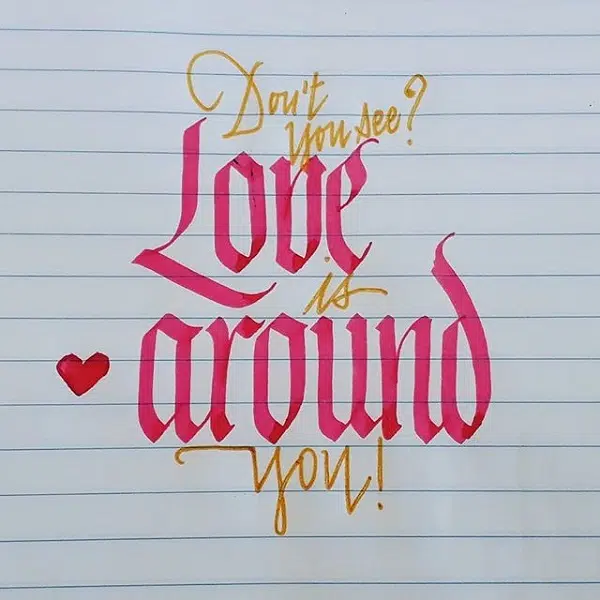 Don't
you see?
Love
is
around
you!